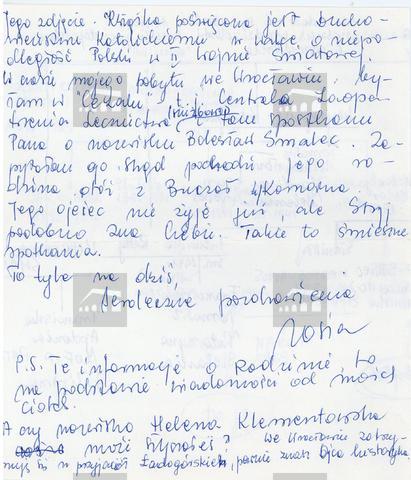 jego zdjęcie. Książka poświęcona jest Ducho-
wieństwu Katolickiemu w walce o niepo-
dległość Polski w II Wojnie Światowej.
W czasie mojego pobytu we Wrocławiu, by-
łam w "Cezalu" t.j Centrala Zaopa-
trzenia Lecznictwa i tam spotkałam
Pana o nazwisku Bolesław Smalec. Za-
pytałam go skąd pochodzi jego ro-
dzina, otóż z Brzozł Wkomorna.
Jego ojciec nie żyje już, ale Stryj
podobno zna Ciebie. Takie to śmieszne
spotkania.
To tyle na dziś,
Serdeczne pozdrowienia
Zosia
P.S. Te informacje o Rodzinie, to
na podstawie wiadomości od moich
Ciotek.
A czy nazwisko Helena Klementowska
może kojarzysz? We Wrocławiu zatrzy-
muję się u przyjaciół Zadogórskich, pewnie znasz Ojca